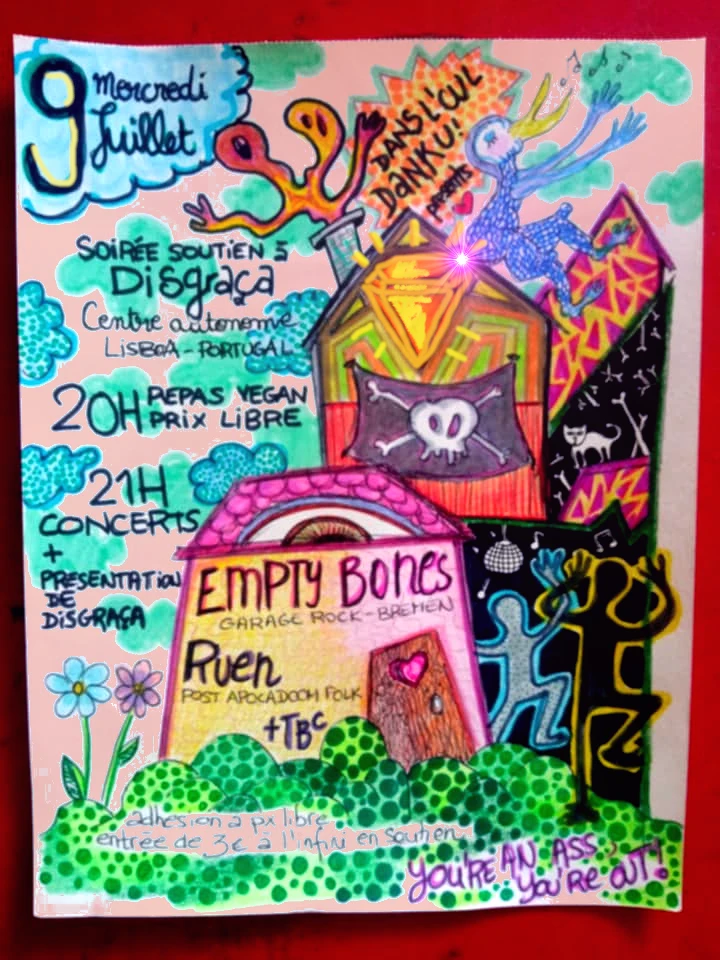 9 Mercredi
Juillet
DANS L'CUL
DANKU!
presents
SOIRÉE SOUTIEN à
Disgraça
Centre autonome
LISBOA - PORTUGAL
20H REPAS VEGAN
PRIX LIBRE
21H
CONCERTS
+
PRESENTATION
DE
DISGRAÇA
EMPTY BONES
GARAGE ROCK - BREMEN
Ruen
POST APOCADOOM FOLK
+TBC
adhésion à px libre
entrée de 3€ à l'infini en soutien
YOU'RE AN ASS,
YOU'RE OUT!